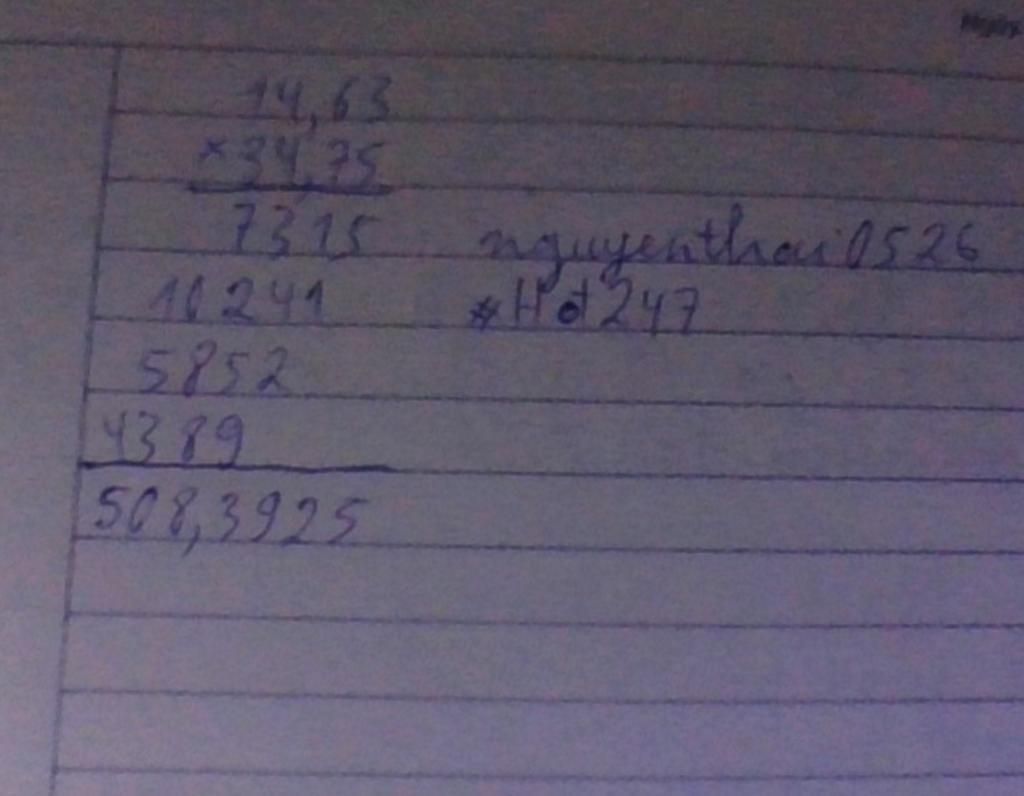 14,63
×34,75
7315 nguyenthai0526
10241 #Hot247
5852
4389
508,3925